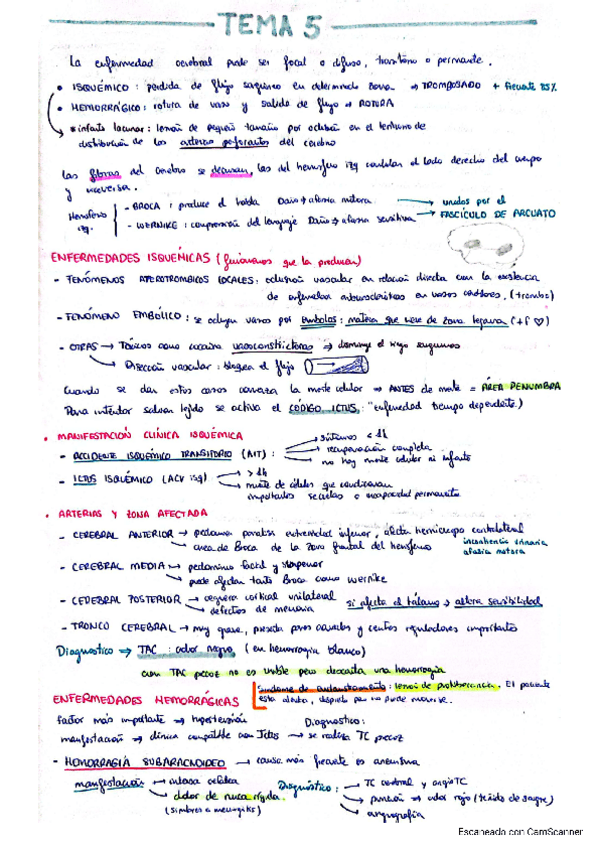 TEMA 5
La enfermedad cerebral puede ser focal o difusa, transitoria o permanente.
• ISQUÉMICO: perdida de flujo sanguíneo en determinada zona → TROMBOSADO + frecuente 85%
• HEMORRÁGICO: rotura de vaso y salida de flujo → ROTURA
* infarto lacunar: lesión de pequeño tamaño por oclusión en el territorio de
distribución de las arterias perforantes del cerebro
Las fibras del cerebro se decusan, las del hemisferio izq controlan el lado derecho del cuerpo
y viceversa.
Hemisferio izq.
- BROCA: produce el habla Daño → afasia motora
- WERNIKE: comprensión del lenguaje Daño → afasia sensitiva
unidos por el
FASCÍCULO DE ARCUATO
ENFERMEDADES ISQUÉMICAS (fenómenos que la producen)
- FENÓMENOS ATEROTROMBICOS LOCALES: oclusión vascular en relación directa con la existencia
de enfermedad arteriosclerótica en vasos cerebrales. (trombo)
- FENÓMENO EMBÓLICO: se ocluyen vasos por émbolos: materia que viene de zona lejana (+f ♡)
- OTRAS → Tóxicos como cocaína vasoconstrictoras → disminuye el riego sanguíneo
Disección vascular: bloquea el flujo
Cuando se dan estos casos comienza la muerte celular → ANTES de muerte = ÁREA PENUMBRA
Para intentar salvar tejido se activa el CÓDIGO ICTUS: "enfermedad tiempo dependiente)
• MANIFESTACIÓN CLÍNICA ISQUÉMICA
- ACCIDENTE ISQUÉMICO TRANSITORIO (AIT):
síntomas < 1h
recuperación completa
no hay muerte celular ni infarto
- ICTUS ISQUÉMICO (ACV isq)
> 1h
muerte de células que conllevan
importantes secuelas o incapacidad permanente
• ARTERIAS Y ZONA AFECTADA
- CEREBRAL ANTERIOR → predomina paralisis extremidad inferior, afecta hemicuerpo contralateral
area de Broca de la zona frontal del hemisferio
incontinencia urinaria
afasia motora
- CEREBRAL MEDIA → predominio facial y superior
puede afectar tanto Broca como Wernike
- CEREBRAL POSTERIOR → ceguera cortical unilateral
defectos de memoria
si afecta el tálamo → altera sensibilidad
- TRONCO CEREBRAL → muy grave, presenta pares craneales y centros reguladores importantes
Diagnostico → TAC: color negro (en hemorragia blanco)
con TAC precoz no es visible pero descarta una hemorragia
Síndrome de enclaustramiento: lesión de protuberancia. El paciente
esta alerta, despierto pero no puede moverse.
ENFERMEDADES HEMORRÁGICAS
factor más importante → hipertensión
manifestación → clínica compatible con Ictus →
Diagnostico:
se realiza TC precoz
- HEMORRAGIA SUBARACNOIDEO → causa más frecuente es aneurisma
manifestación → intensa cefalea
dolor de nuca rígida
(similares a meningitis)
Diagnóstico:
TC cerebral y angioTC
punción → color rojo (teñido de sangre)
angiografía
Escaneado con CamScanner